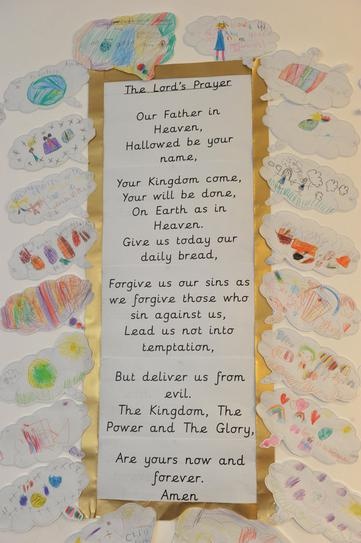 The Lord's Prayer
Our Father in
Heaven,
Hallowed be your
name,
Your Kingdom come,
Your will be done,
On Earth as in
Heaven.
Give us today our
daily bread,
Forgive us our sins as
we forgive those who
sin against us,
Lead us not into
temptation,
But deliver us from
evil.
The Kingdom, The
Power and The Glory,
Are yours now and
forever.
Amen